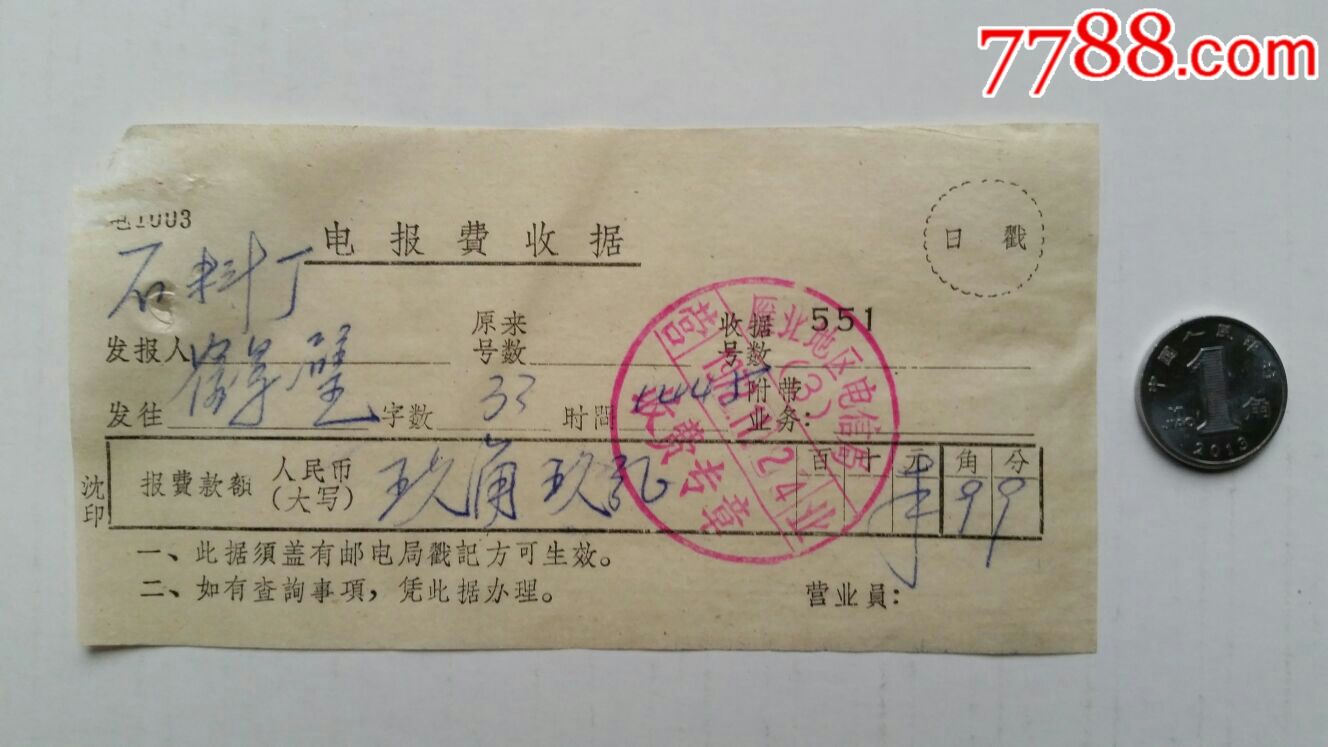 7788.com
电1003
电报費收据
日戳
石料厂
发报人
原来号数
收据号数 551
发往 字数 33 时間 1445 附带业务:
沈印
报費款額 人民币(大写) 玖角玖分
百十元角分
9 9
雁北地区电信局
(3)
营业
收费专章
一、此据須盖有邮电局戳記方可生效。
二、如有查詢事項,凭此据办理。
营业員:
中国人民银行
1角
2013